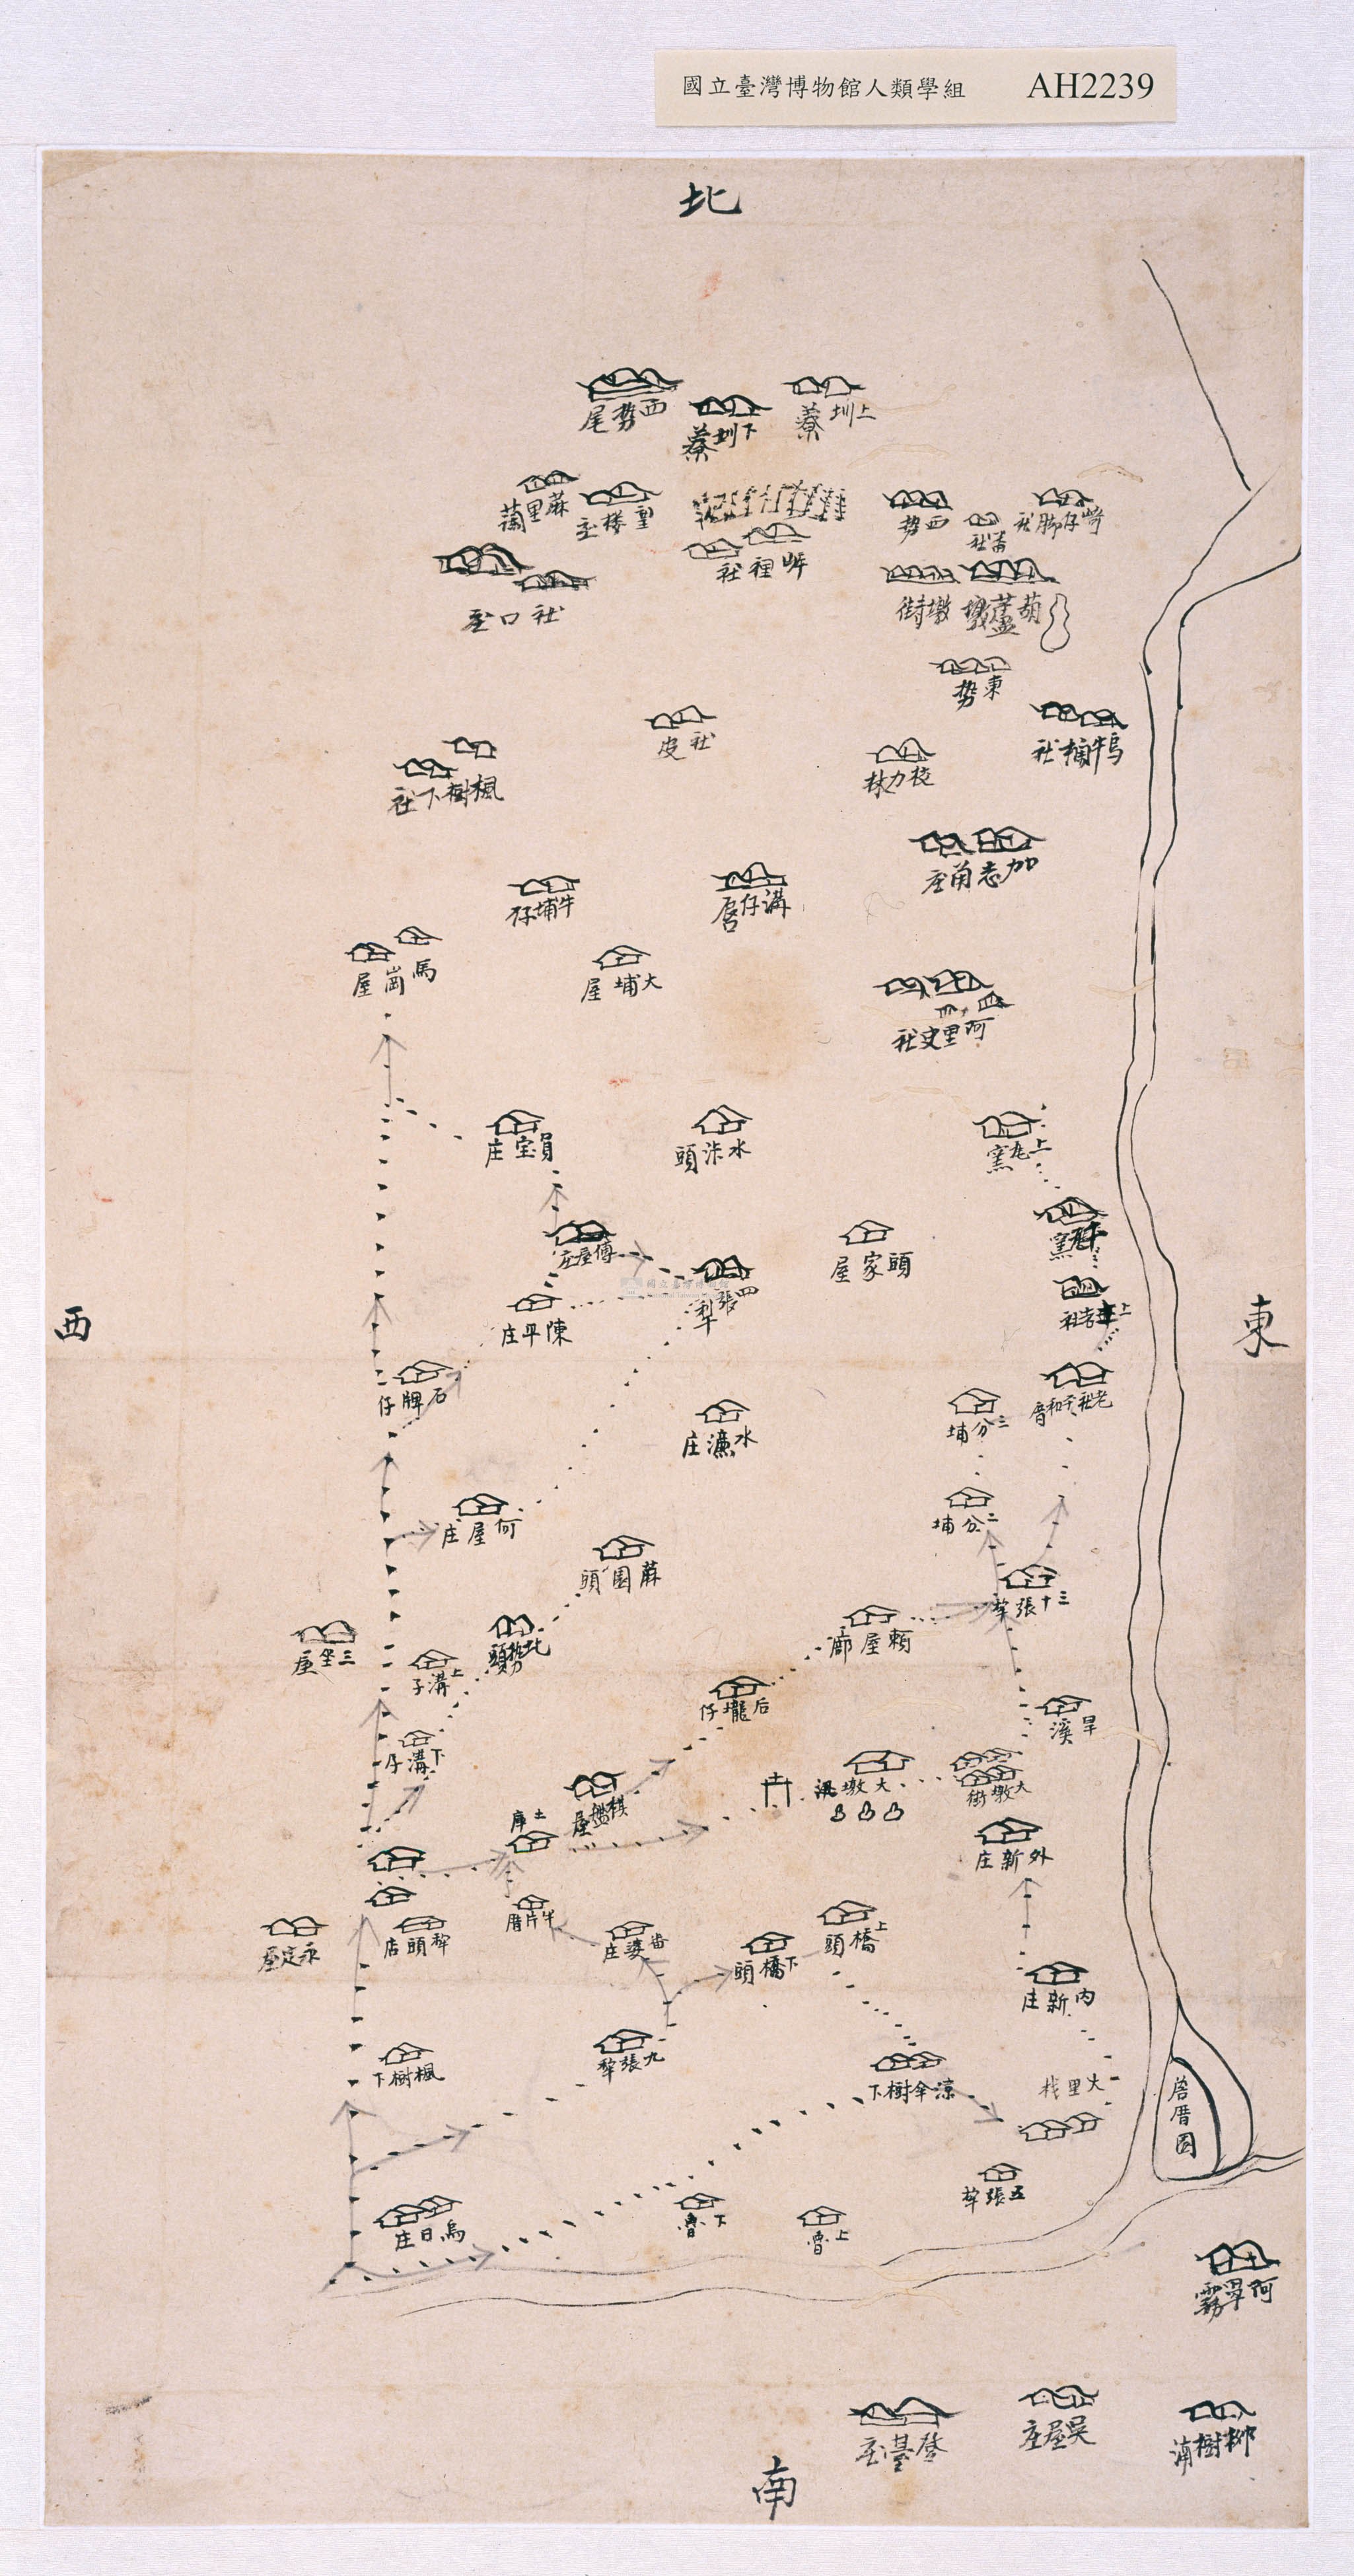 國立臺灣博物館人類學組 AH2239
北
西勢尾
下圳藔
上圳藔
蔴里蘭
社口庄
岸裡社
西勢
番社
崎仔脚社
墩街
葫蘆墩
東勢
社皮
楓樹下社
校力林
烏牛欄社
加志前庄
牛埔仔
溝仔唇
馬崗屋
大埔屋
阿里史社
員宝庄
水汴頭
上瓦窯
傅屋庄
四張犁
頭家屋
陳平庄
西
東
石牌仔
水湳庄
三分埔
何屋庄
二分埔
蔴園頭
三十張犂
賴屋廍
北勢頭
上溝子
后壠仔
旱溪
下溝仔
大墩汛
大墩街
土庫
外新庄
犂頭店
永定屋
番婆庄
下橋頭
上橋頭
內新庄
九張犂
楓樹下
涼傘樹下
大里栈
五張犂
烏日庄
下魯
上魯
阿罩霧
登臺庄
吳屋庄
柳樹湳
南